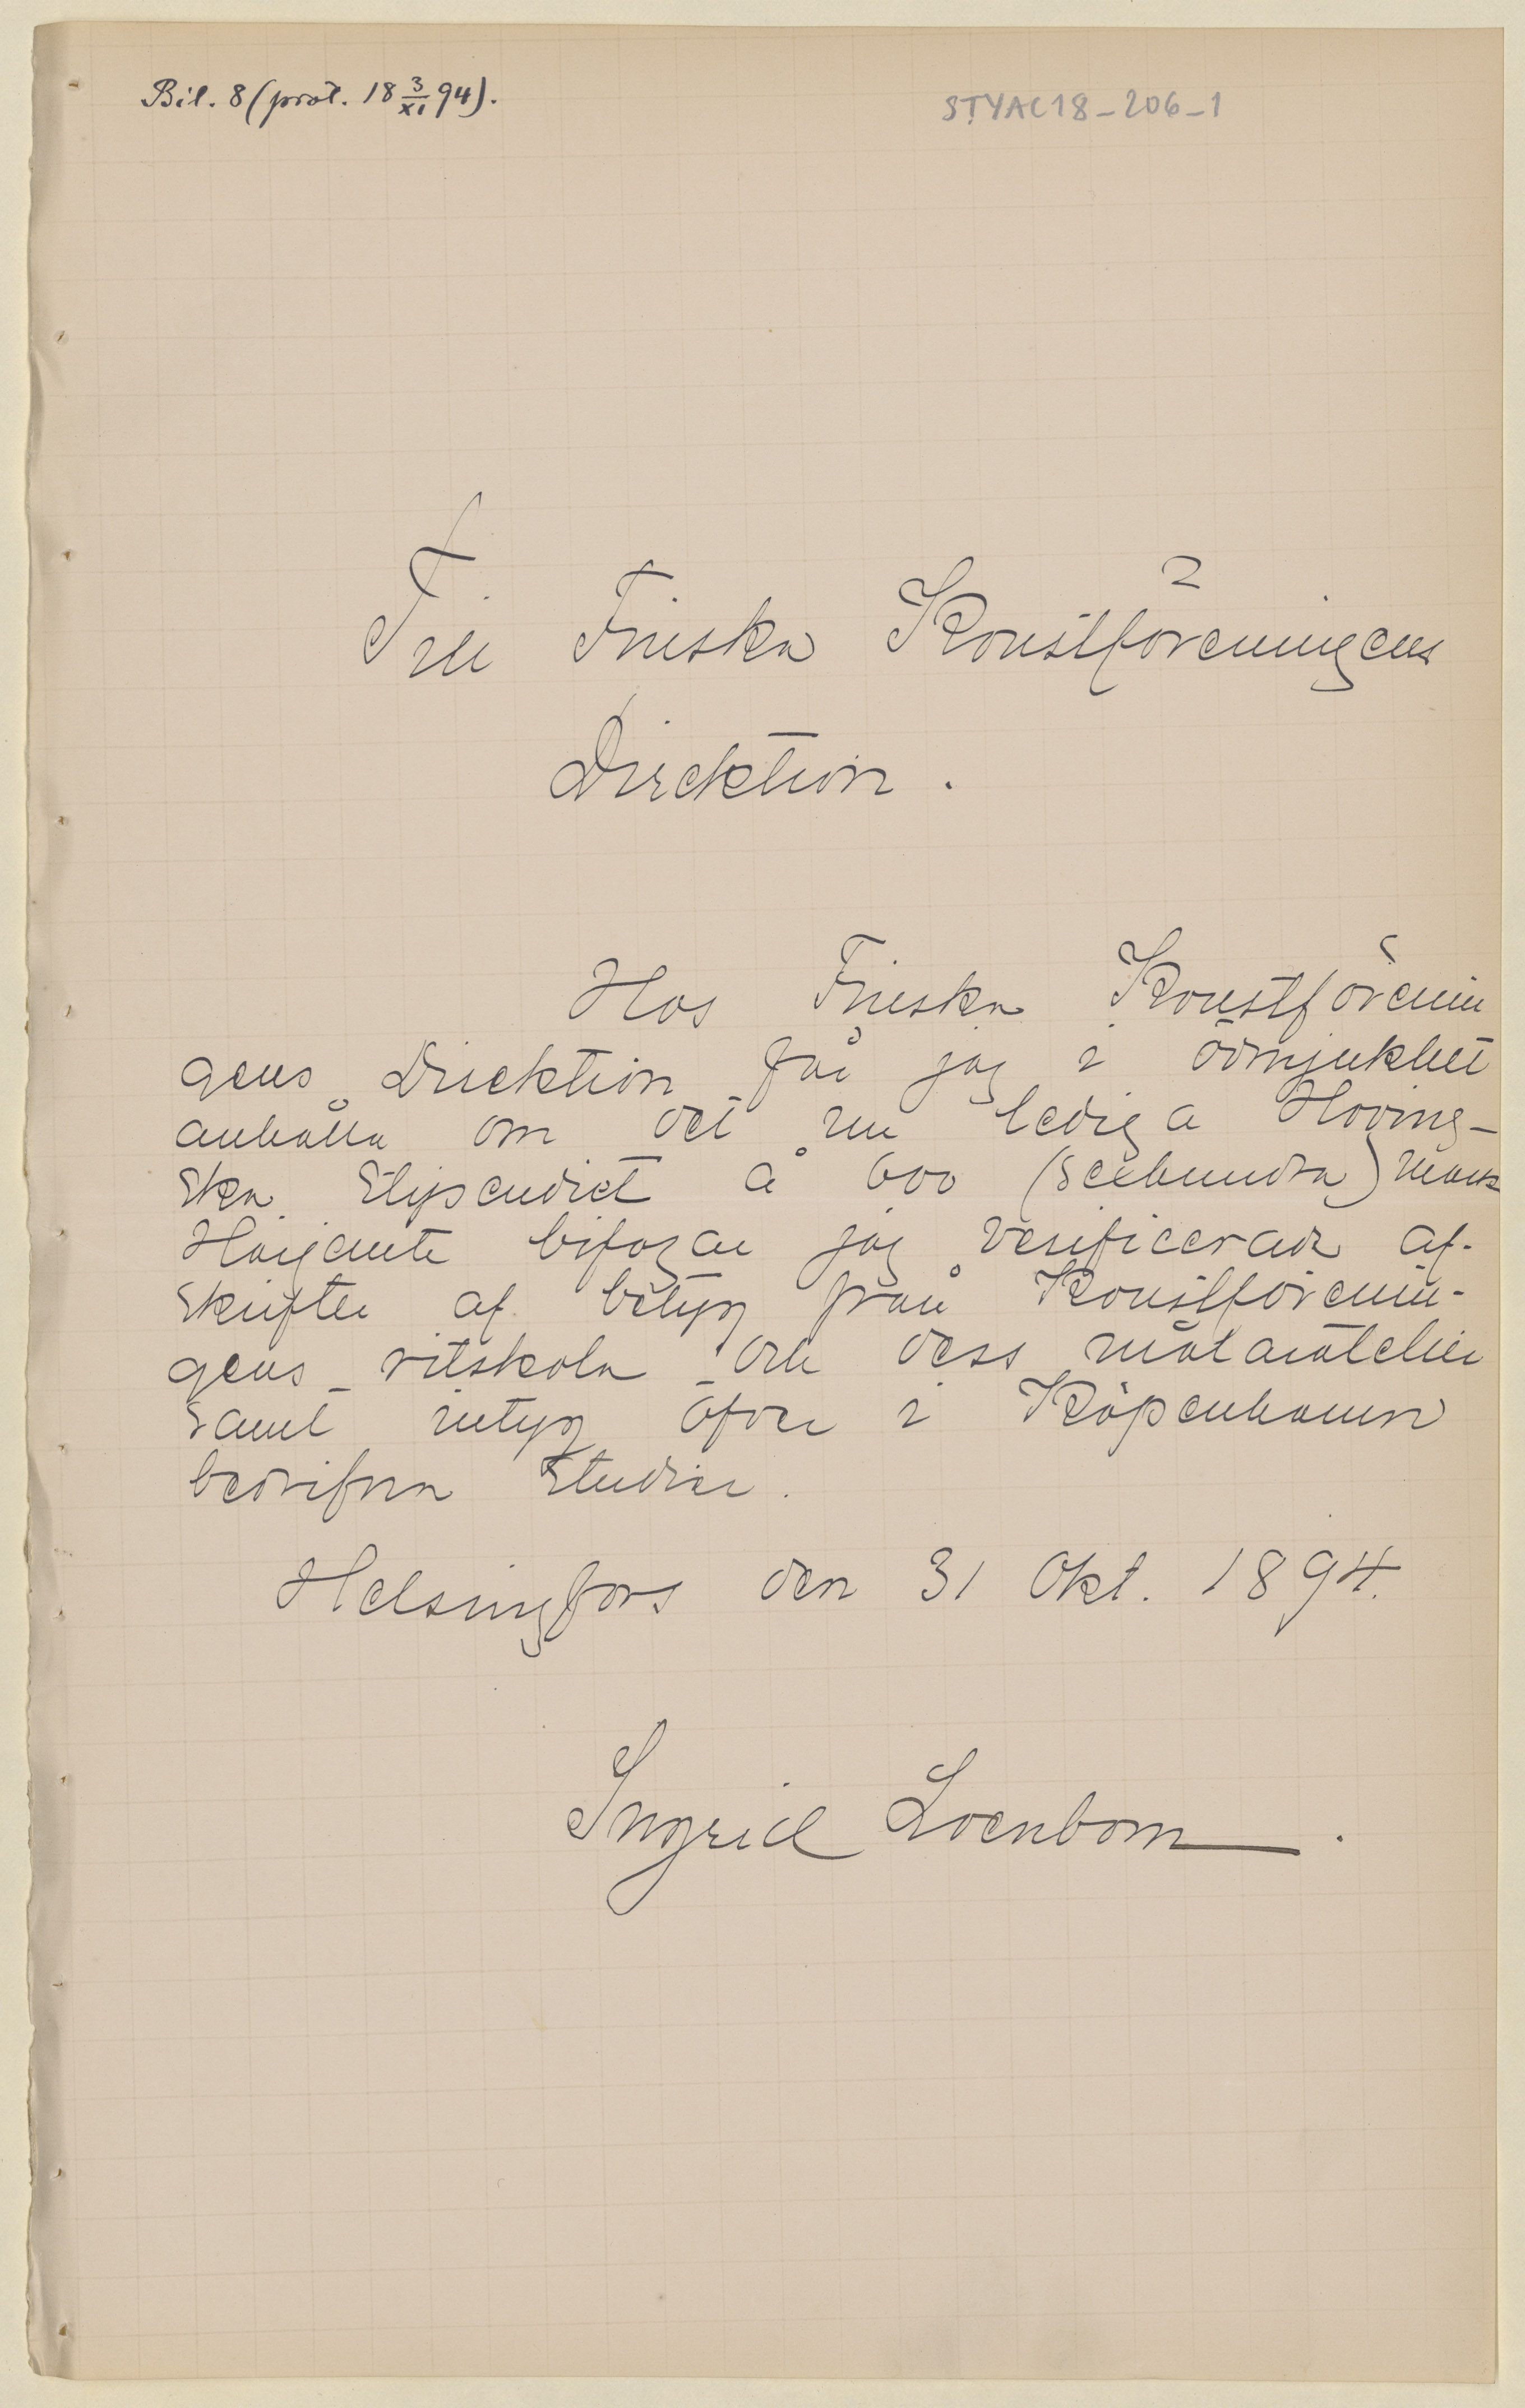 Bil. 8 (prot. 18 3/XI 94).
STYAC18-206-1
Till Finska Konstföreningens
Direktion.
Hos Finska Konstförenin
gens Direktion får jag i ödmjukhet
anhålla om det nu lediga Hoving-
ska stipendiet à 600 (sexhundra) mark
Härjämte bifogar jag verificerade af-
skrifter af betyg från Konstförenin-
gens ritskola och dess målaratelier
samt intyg öfver i Köpenhamn
bedrifna studier.
Helsingfors den 31 Okt. 1894.
Ingrid Loenbom.